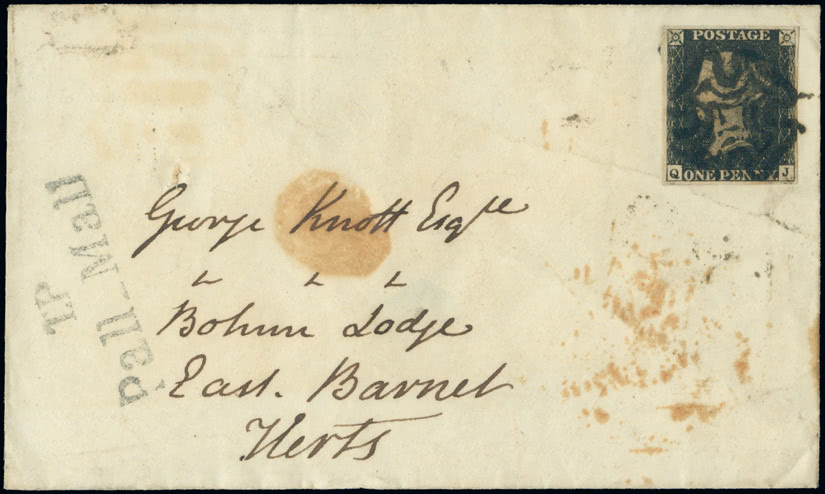 POSTAGE
Q ONE PENNY J
T.P
Pall_Mall
George Knott Esqre
Bohun Lodge
East. Barnet
Herts